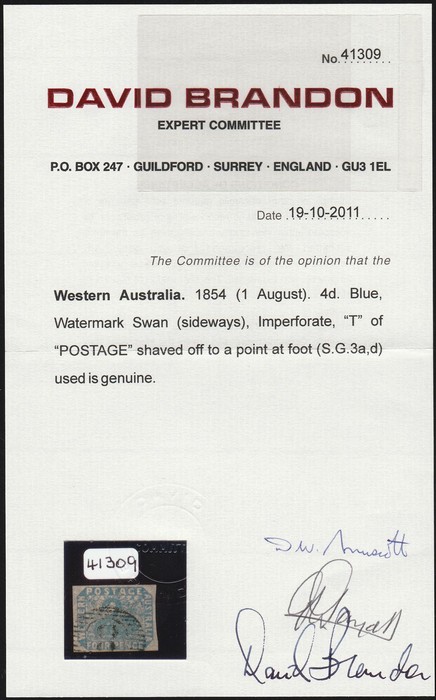 No. 41309
DAVID BRANDON
EXPERT COMMITTEE
P.O. BOX 247 · GUILDFORD · SURREY · ENGLAND · GU3 1EL
Date 19-10-2011
The Committee is of the opinion that the
Western Australia. 1854 (1 August). 4d. Blue,
Watermark Swan (sideways), Imperforate, “T” of
“POSTAGE” shaved off to a point at foot (S.G.3a,d)
used is genuine.
41309
POSTAGE
FOUR PENCE
David Brandon